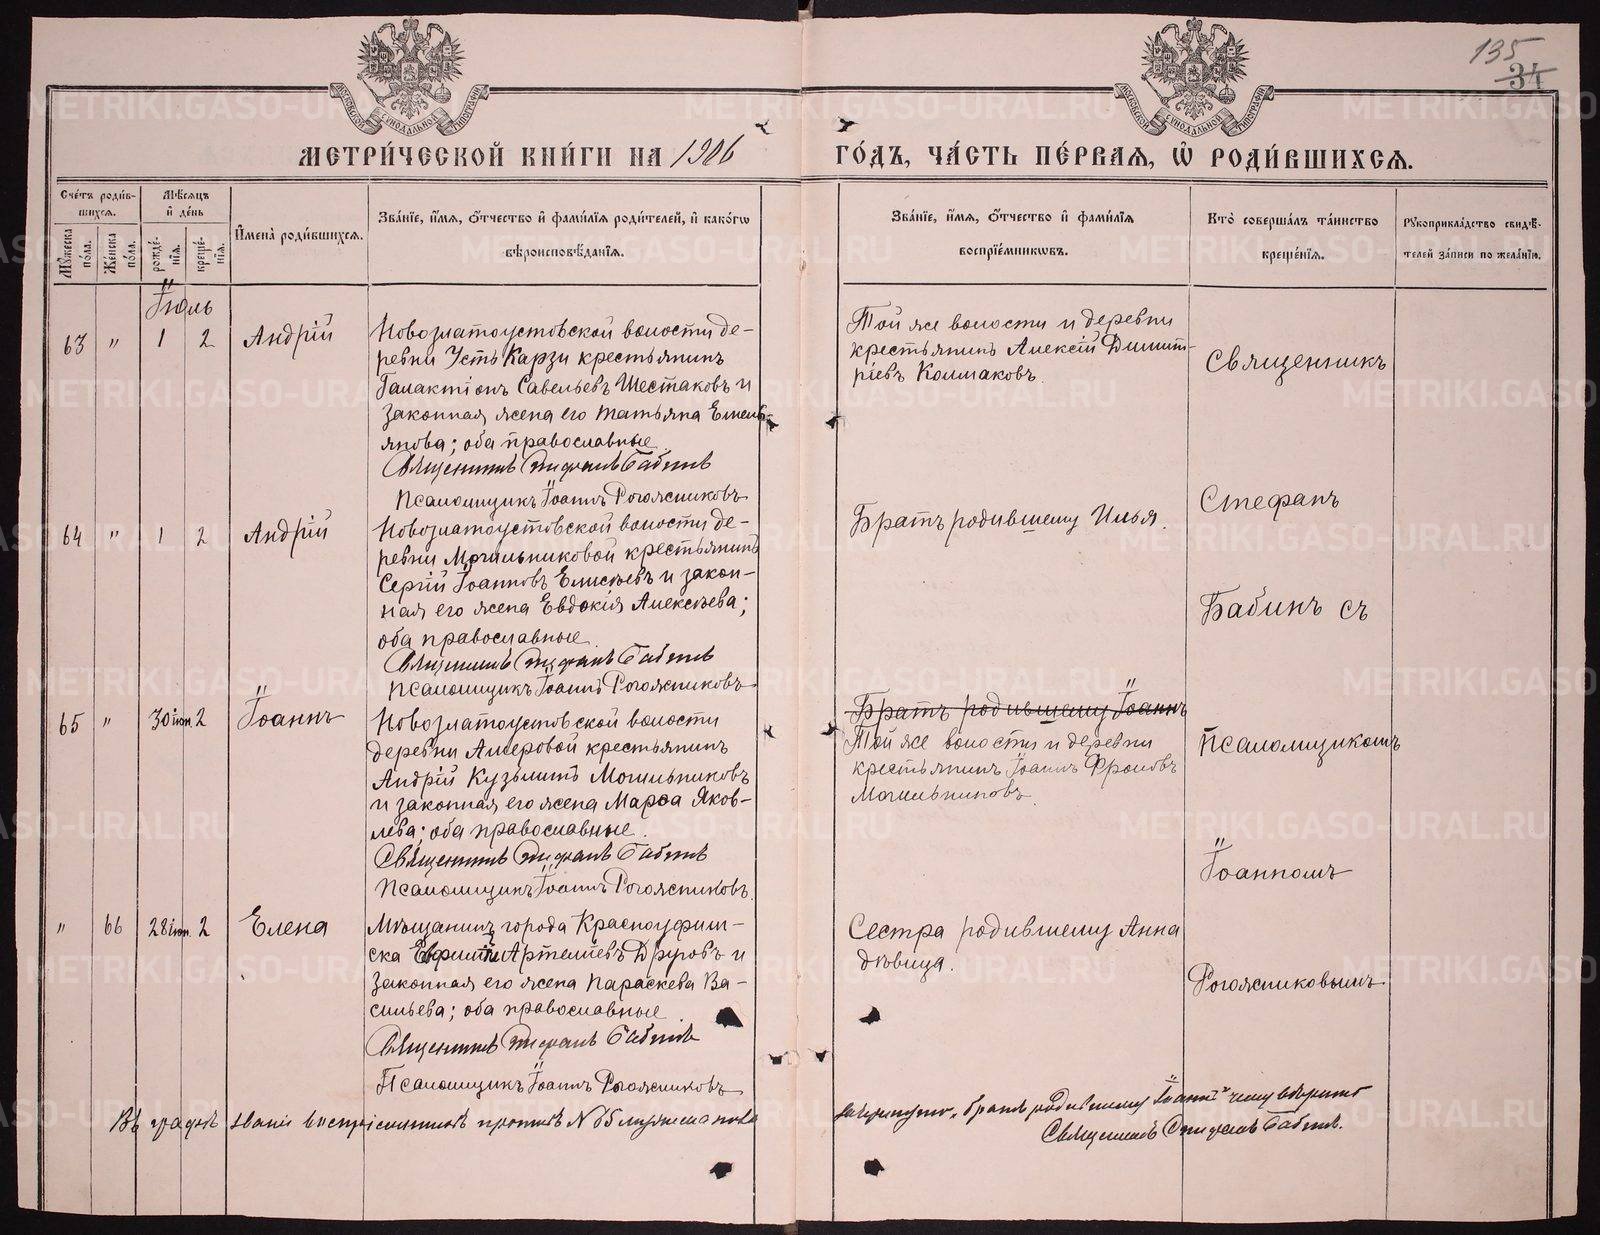 135
34
МЕТРИ́ЧЕСКОЙ КНИ́ГИ НА 1906
ГО́ДЪ, ЧА́СТЬ ПЕ́РВАЯ, Ѽ РОДИ́ВШИХСЯ.
Сче́тъ роди́в-
шихся.
Мѣ́сяцъ
и҆ де́нь
И҆мена̀ роди́вшихся.
Зва́нїе, и҆́мя, ѻ҆́тчество и҆ фами́лїя роди́телей, и҆ како́гѡ
вѣроисповѣ́данїя.
Зва́нїе, и҆́мя, ѻ҆́тчество и҆ фами́лїя
воспрїе́мникѡвъ.
Кто̀ соверша́лъ та́инство
креще́нїя.
Рꙋкоприкла́дство свидѣ́-
телей за́писи по жела́нїю.
Мꙋ́жеска
по́ла.
Же́нска
по́ла.
рожде́-
нїя.
креще́-
нїя.
Іюль
63 " 1 2 Андрій
Новозлатоустовской волости де-
ревни Усть Карзи крестьянинъ
Галактіонъ Савельевъ Шестаковъ и
законная жена его Татьяна Емель-
янова; оба православные
Священникъ Стефанъ Бабинъ
Псаломщикъ Іоаннъ Рогожниковъ
Той же волости и деревни
крестьянинъ Алексій Димит-
ріевъ Колмаковъ.
Священникъ
64 " 1 2 Андрій
Новозлатоустовской волости де-
ревни Могильниковой крестьянинъ
Сергій Іоанновъ Елисѣевъ и закон-
ная его жена Евдокія Алексѣева;
оба православные
Священникъ Стефанъ Бабинъ
Псаломщикъ Іоаннъ Рогожниковъ
Братъ родившему Илья.
Стефанъ
Бабинъ съ
65 " 30 іюн. 2 Іоаннъ
Новозлатоустовской волости
деревни Амеровой крестьянинъ
Андрій Кузьминъ Могильниковъ
и законная его жена Марѳа Яков-
лева; оба православные.
Священникъ Стефанъ Бабинъ
Псаломщикъ Іоаннъ Рогожниковъ.
Братъ родившему Іоаннъ
Той же волости и деревни
крестьянинъ Іоаннъ Фроловъ
Могильниковъ.
Псаломщикомъ
Іоанномъ
" 66 28 іюн. 2 Елена
Мѣщанинъ города Красноуфим-
ска Евфимій Артеміевъ Друровъ и
законная его жена Параскева Ва-
сильева; оба православные.
Священникъ Стефанъ Бабинъ
Псаломщикъ Іоаннъ Рогожниковъ
Сестра родившему Анна
дѣвица.
Рогожниковымъ
Въ графѣ званіе воспріемниковъ противъ № 65 мужеска пола
зачеркнуто „братъ родившему Іоаннъ" чему вѣримъ
Священникъ Стефанъ Бабинъ.